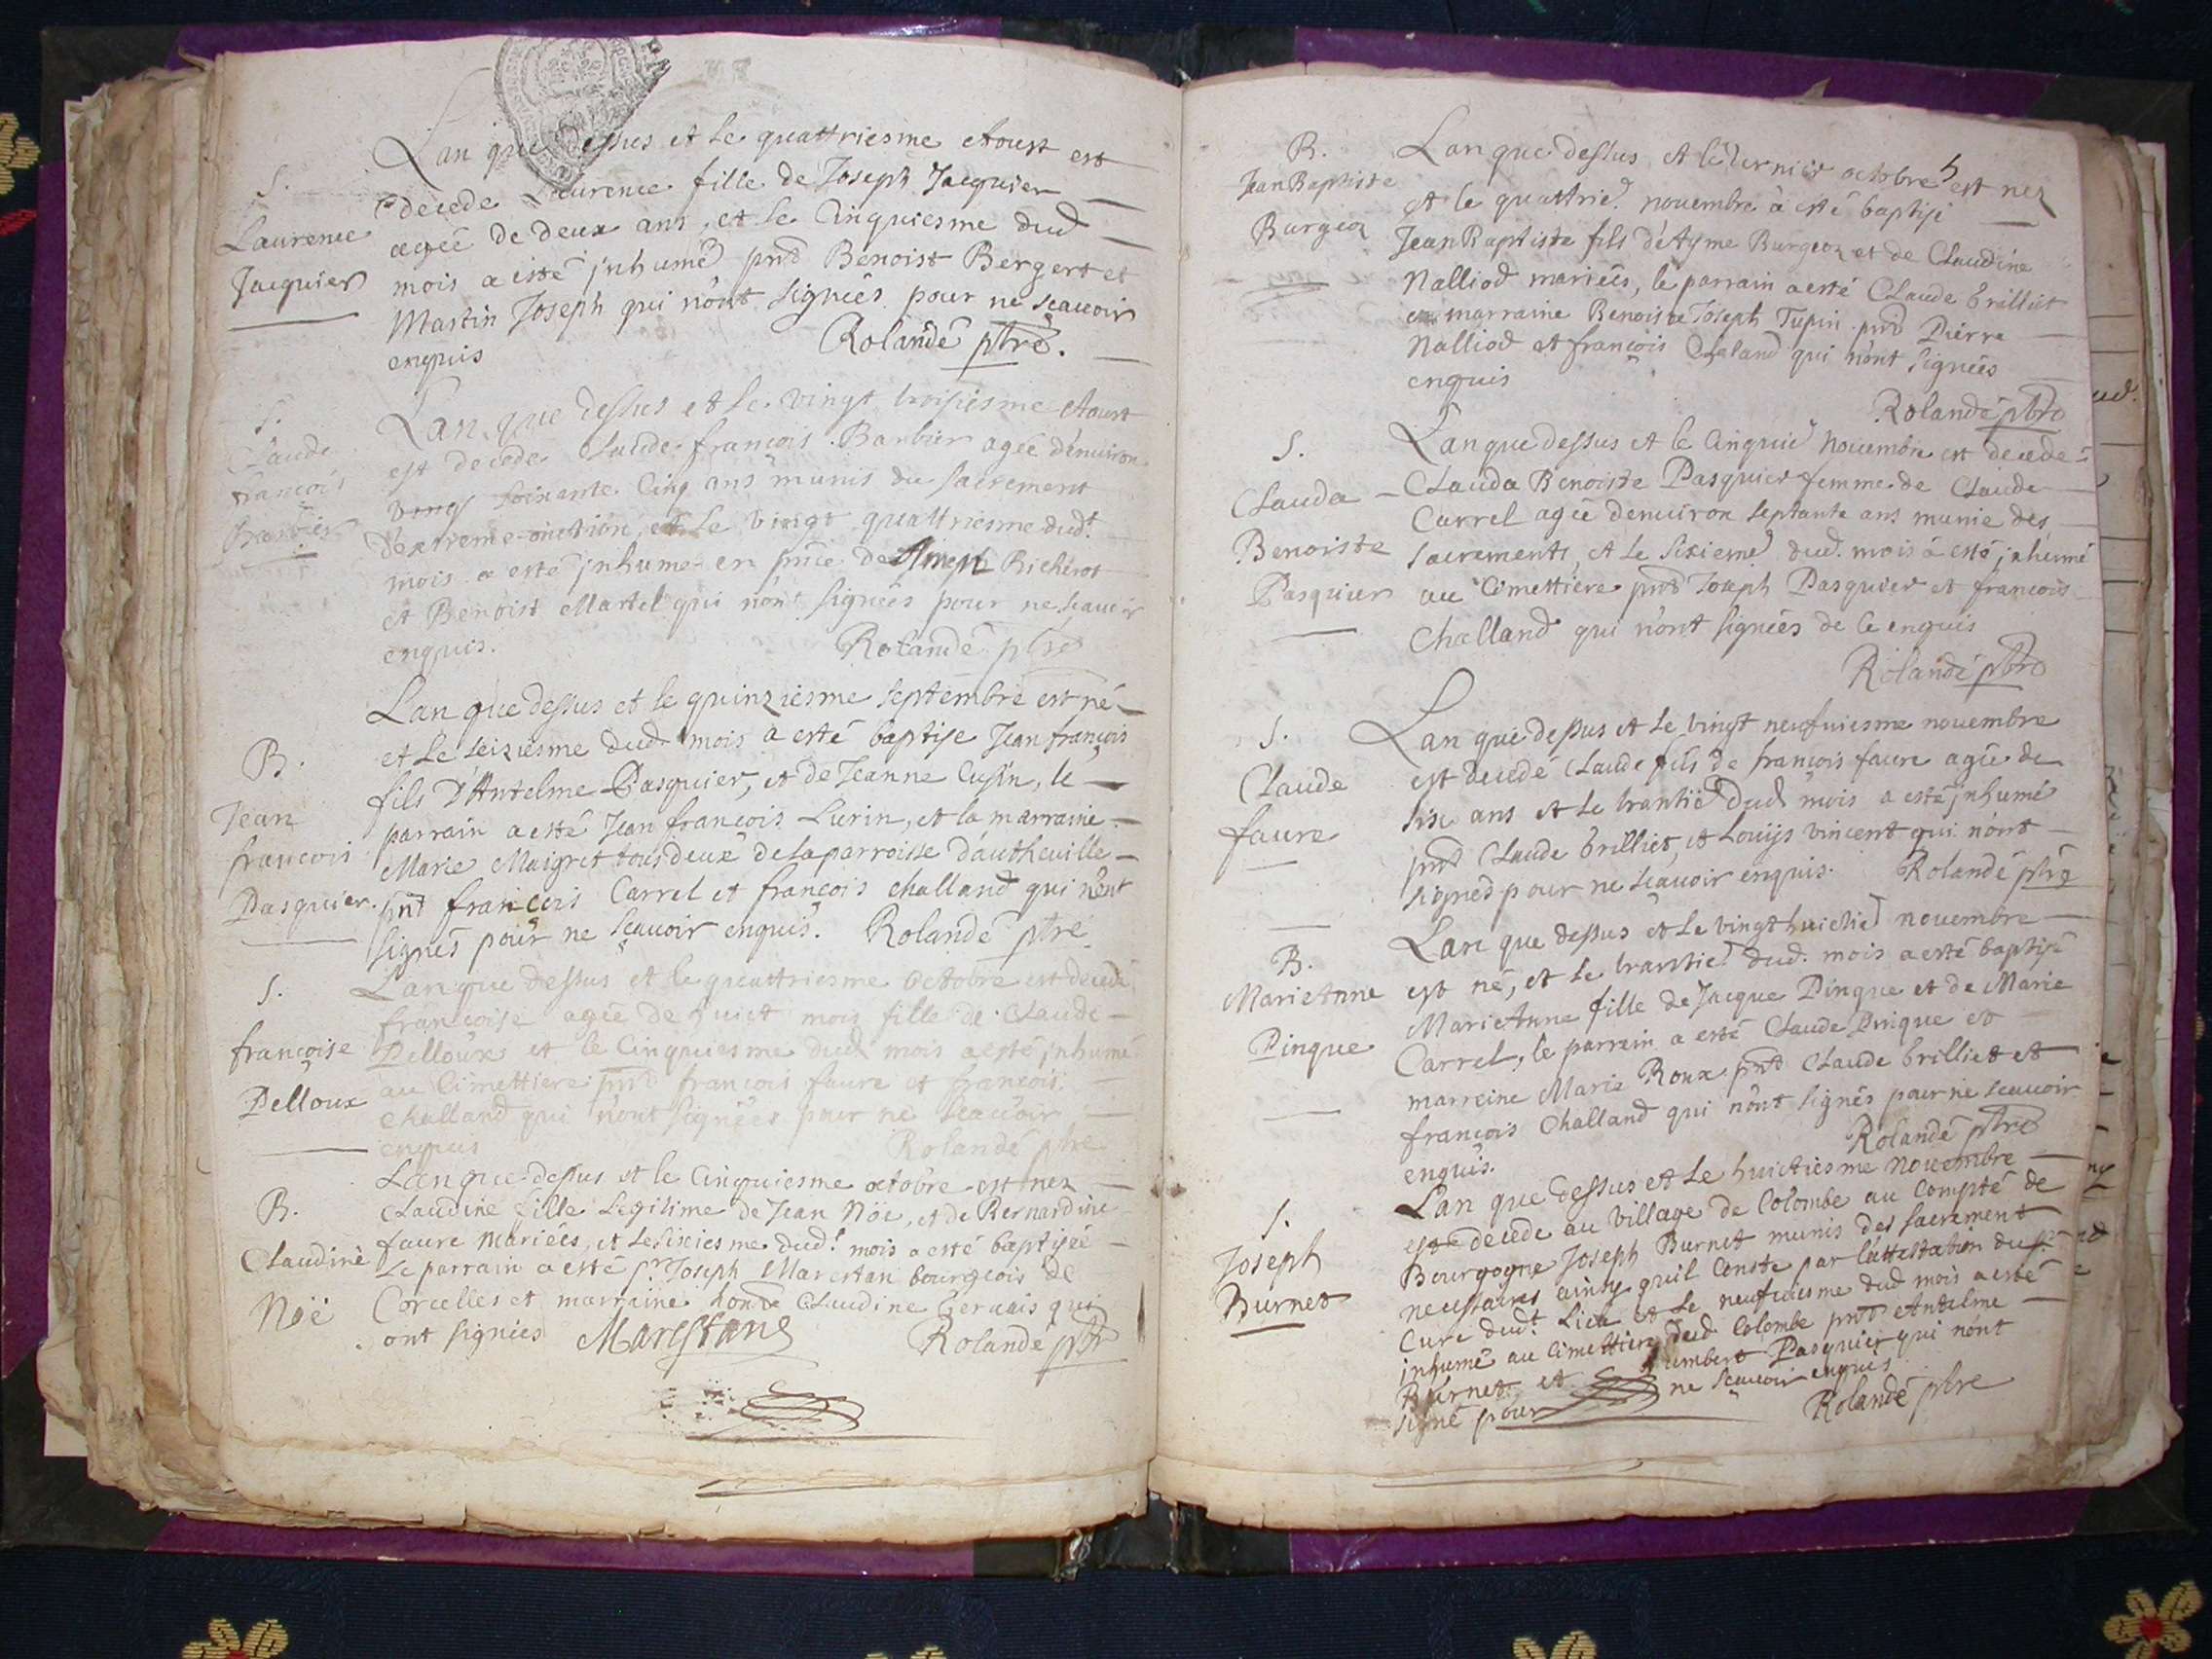 Lan que dessus et le quattriesme Aoust est
S.
decede Laurence fille de Joseph Jacquier
Laurence
agée de deux ans, et le Cinquiesme dud
Jacquier
mois a esté jnhumé pnd Benoist Bergeret et
Martin Joseph qui nónt signées pour ne scauoir
enquis
Rolande ptre.
S.
Claude
francois
Barbier
Lan que dessus et le vingt troisiesme Aoust
est decede Claude françois Barbier agée dénuiron
soixante Cinq ans munis du sacrement
d'extreme-onction, et le vingt quattriesme dud.t
mois a esté jnhumé en pnce de Joseph Richerot
et Benoist Martel qui nónt signées pour ne scauoir
enquis.
Rolandé ptre
B.
Jean
francois
Pasquier.
Lan que dessus et le quinziesme septembre est né
et le seiziesme dud. mois a esté baptise Jean françois
fils D'Antelme Pasquier, et de Jeanne Cusin, le
parrain a esté Jean francois Lurin, et la marraine
Marie Maigret tous deux de la parroisse dáutheuille
pnt francois Carrel et françois challand qui nónt
signés pour ne scauoir enquis. Rolandé ptre
S.
françoise
Pelloux
Lan que dessus et le quattriesme octobre est decedé
françoise agée de huict mois fille de Claude
Pelloux et le Cinquiesme dud mois a esté jnhumé
au Cimettiere pnd françois faure et francois
challand qui nónt signées pour ne scauoir
enquis
Rolandé ptre
B.
Claudine
Noë
Lan que dessus et le Cinquiesme octobre est nez
Claudine fille Legitime de Jean Nöe, et de Bernardine
faure mariées, et le sixiesme dud.t mois a esté baptisée
Le parrain a esté Joseph Marestan bourgeois de
Corcelles et marraine Claudine Geruais qui
ont signées
Marestans
Rolandé ptr
B.
Jean Baptiste
Burgeon
Lan que dessus et le dernier octobre est nez
et le quattrie. nouembre à esté baptisé
Jean Baptiste fils d'Ayme Burgeon et de Claudine
Nalliod mariées, le parrain a esté Claude brilliet
marraine Benoiste Joseph Tupin pnd Pierre
Nalliod et françois Chaland qui nónt signées
enquis
Rolandé ptre
S.
Clauda
Benoiste
Pasquier
Lan que dessus et le Cinquie nouembre est decede
Clauda Benoiste Pasquier femme de Claude
Carrel agée denuiron septante ans munie des
sacrements, et le sixieme dud. mois à esté jnhumé
au Cimettiere pnd Joseph Pasquier et francois
Challand qui nónt signées de ce enquis
Rolandé ptre
S.
Claude
faure
Lan que dessus et le vingt neufuiesme nouembre
est decedé Claude fils de françois faure agée de
six ans et le trantie dud mois a esté jnhumé
pnd Claude brilliet, et Louijs vincent qui nónt
signed pour ne scauoir enquis. Rolandé ptre
B.
Marie Anne
Pinque
Lan que dessus et le vingt huictie nouembre
est né, et le trantie dud. mois a esté baptisé
Marie Anne fille de Jacque Pinque et de Marie
Carrel, le parrain a esté Claude Pinque et
marreine Marie Roux pnd Claude brilliet et
françois Challand qui nónt signés pour ne scauoir
enquis.
Rolandé ptre
S.
Joseph
Burnet
Lan que dessus et le huictiesme nouembre
est decede au village de Colombe au Compté de
Bourgogne Joseph Burnet munis des sacrement
necessaires ainsy quil Conste par l'attestation du sr
Curé dud.t Lieu et le neufuiesme dud mois a esté
inhumé au Cimettiere dud. Colombe pnd Antelme
Burnet et humbert Pasquier qui nónt
signé pour ne scauoir enquis
Rolandé ptre